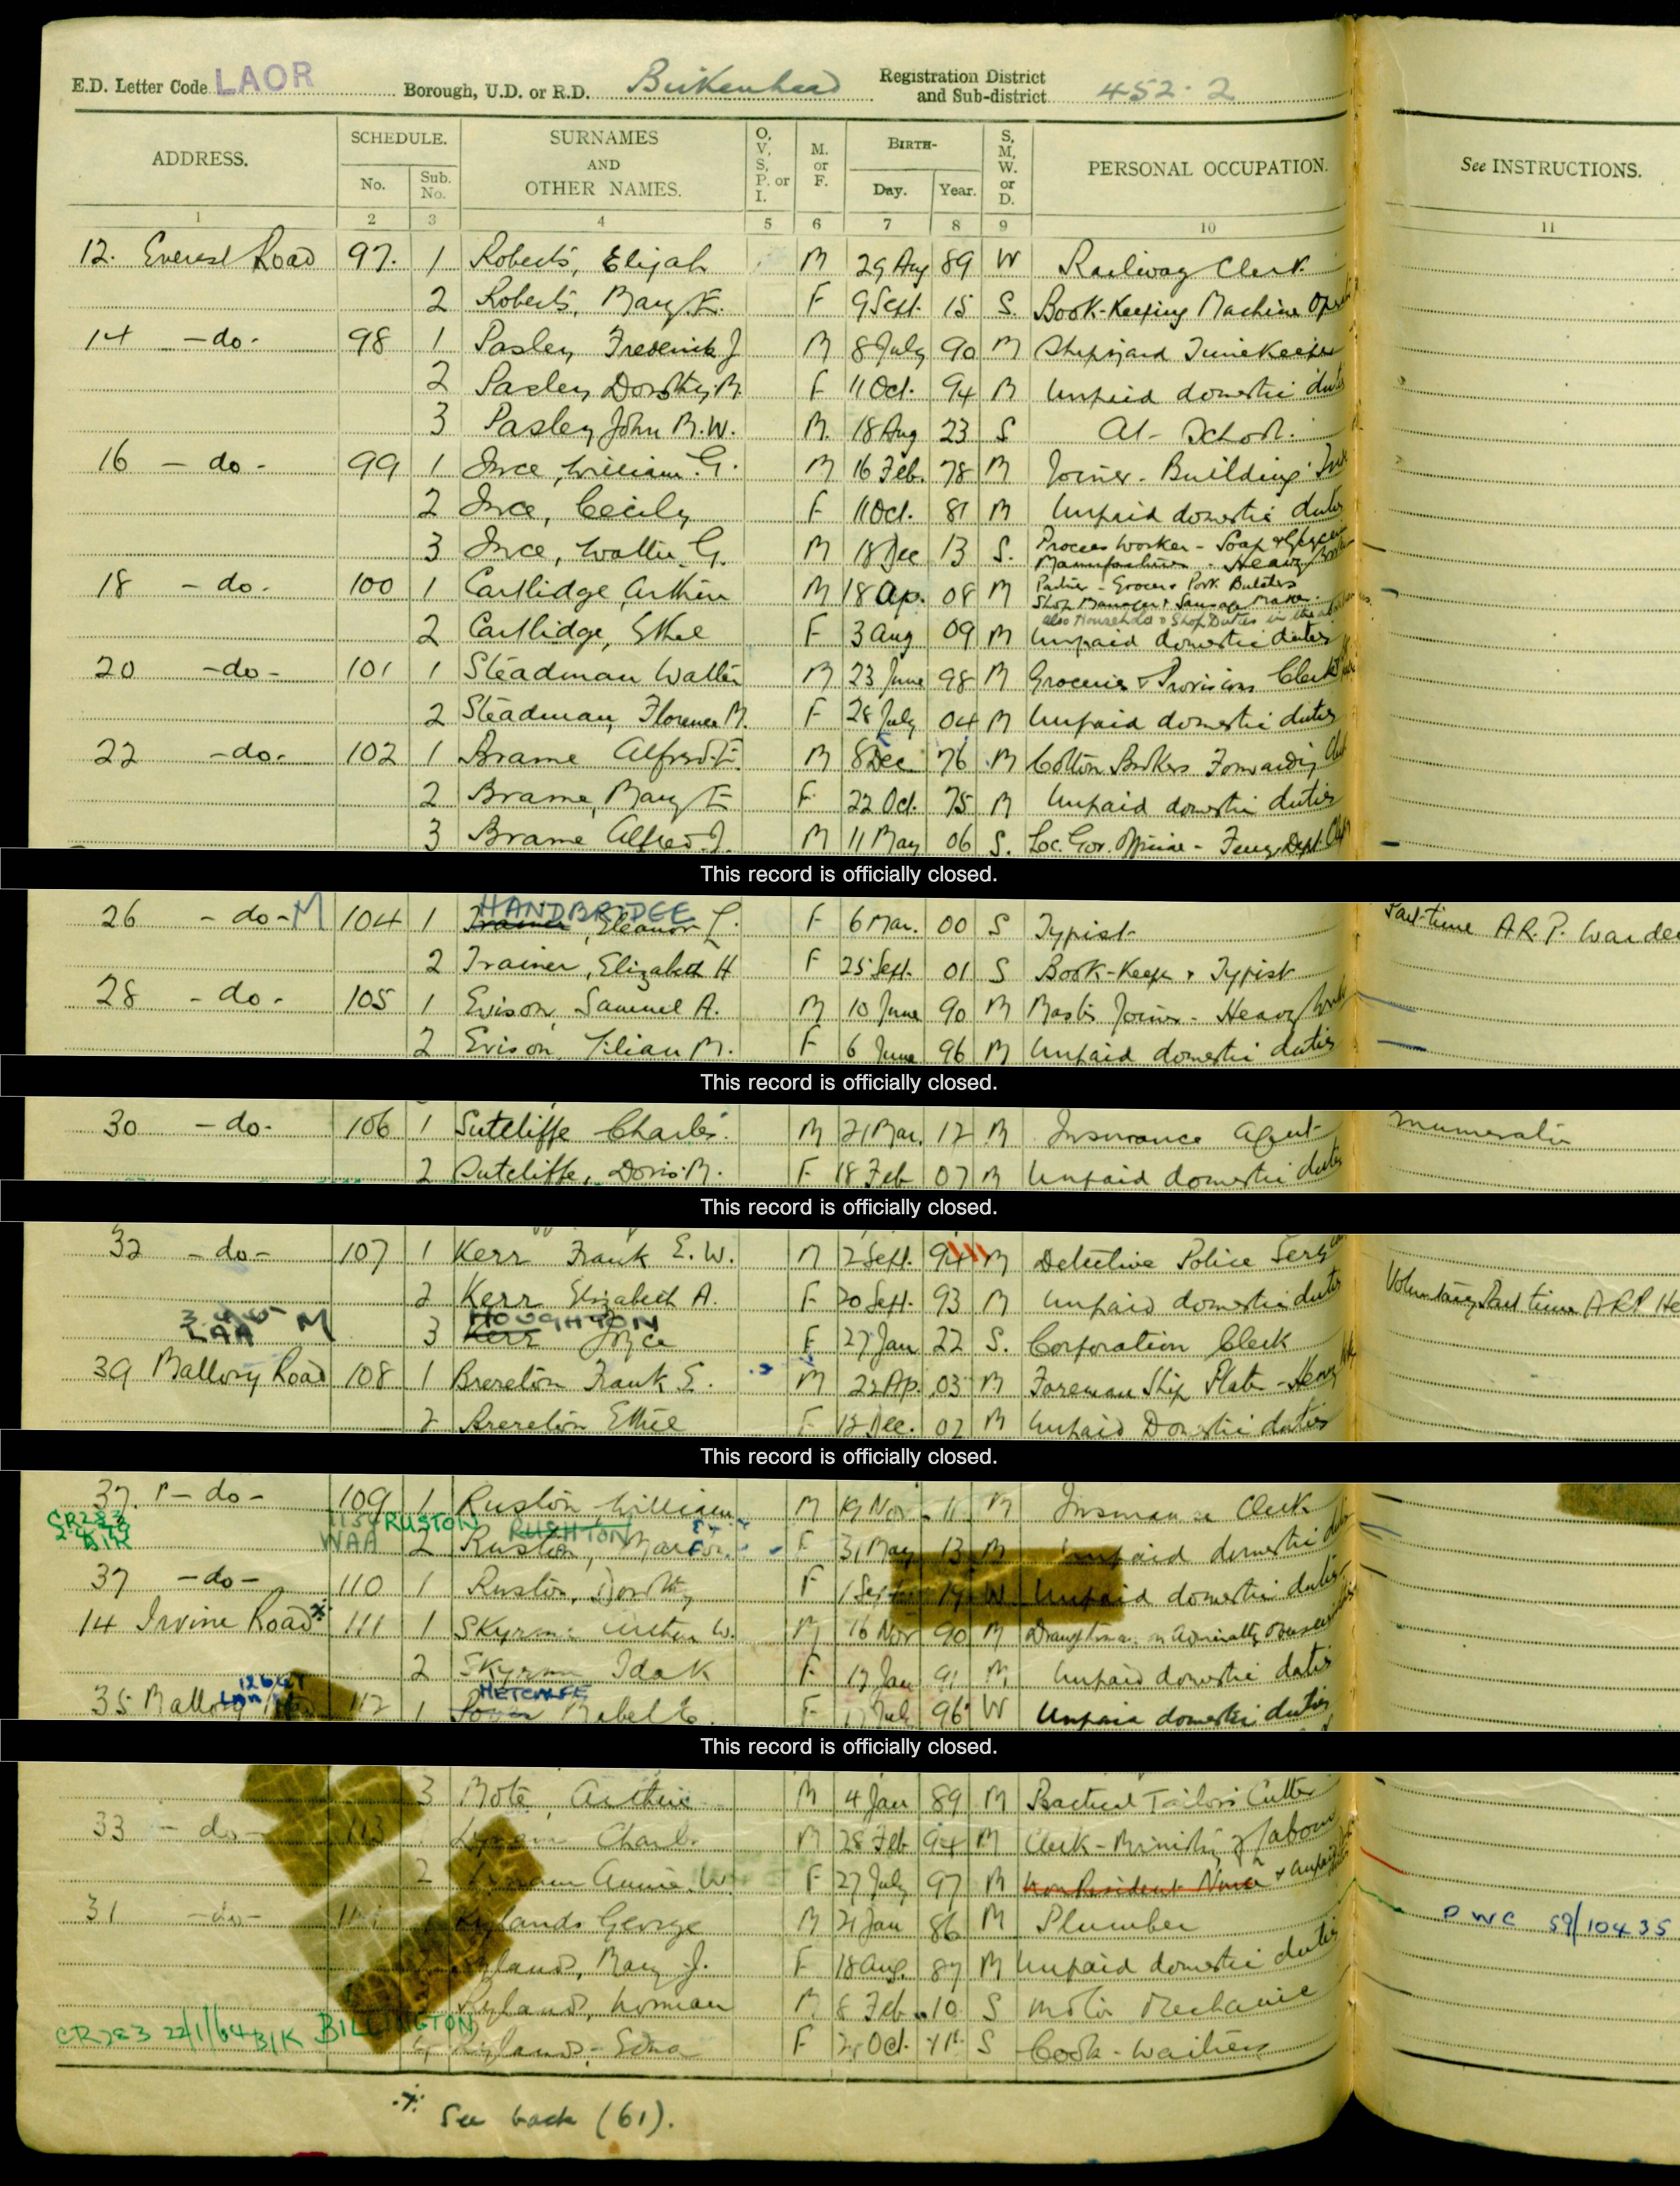 E.D. Letter Code LAOR Borough, U.D. or R.D. Birkenhead Registration District and Sub-district 452.2
ADDRESS. SCHEDULE. No. Sub. No. SURNAMES AND OTHER NAMES. O, V, S, P. or I. M. or F. BIRTH- Day. Year. S, M, W. or D. PERSONAL OCCUPATION. See INSTRUCTIONS.
1 2 3 4 5 6 7 8 9 10 11
12. Everest Road 97. 1 Roberts, Elijah M 29 Aug 89 W Railway Clerk
2 Roberts, Mary E. F 9 Sept. 15 S. Book-Keeping Machine
14 - do - 98 1 Pasley, Frederick J M 8 July 90 M Shipyard Timekeeper
2 Pasley, Dorothy M. F 11 Oct. 94 M Unpaid domestic duties
3 Pasley John M.W. M. 18 Aug 23 S At - School.
16 - do - 99 1 Ince, William G. M 16 Feb. 78 M Joiner - Building
2 Ince, Cecily F 11 Oct. 81 M Unpaid domestic duties
3 Ince, Walter G. M 18 Dec 13 S. Process Worker - Soap & Glycerine
Manufacturers - Heavy
18 - do - 100 1 Cartlidge Arthur M 18 Ap. 08 M Partner - Grocer & Pork Butchers
Shop Manager & Sausage Maker
also Household & Shop Duties in the
2 Cartlidge, Ethel F 3 Aug 09 M Unpaid domestic duties
20 - do - 101 1 Steadman Walter M 23 June 98 M Groceries & Provisions Clerk
2 Steadman, Florence M. F 28 July 04 M Unpaid domestic duties
22 - do - 102 1 Brame Alfred E. M 8 Dec 76 M Cotton Brokers Forwarding
2 Brame, Mary E F 22 Oct. 75 M Unpaid domestic duties
3 Brame Alfred J. M 11 May 06 S. Loc. Gov. Officer - Ferry Dept.
This record is officially closed.
HANDBRIDGE
26 - do - M 104 1 Trainer, Eleanor L. F 6 Mar. 00 S Typist Part-time A.R.P.
2 Trainer, Elizabeth H F 25 Sept. 01 S Book-Keeper & Typist
28 - do - 105 1 Evison, Samuel A. M 10 June 90 M Master Joiner - Heavy
2 Evison, Lilian M. F 6 June 96 M Unpaid domestic duties
This record is officially closed.
30 - do - 106 1 Sutcliffe Charles M 21 Mar. 12 M Insurance Agent
2 Sutcliffe, Doris M. F 18 Feb 07 M Unpaid domestic duties
This record is officially closed.
32 - do - 107 1 Kerr Frank E. W. M 2 Sept. 94 M Detective Police
2 Kerr Elizabeth A. F 20 Sept. 93 M Unpaid domestic duties Voluntary Part time A.R.P.
LAA M HOUGHTON
3 Kerr Joyce F 27 Jan 22 S. Corporation Clerk
39 Mallory Road 108 1 Brereton Frank E. M 22 Ap. 03 M Foreman Ship Plater - Heavy
2 Brereton Ethel F 12 Dec. 02 M Unpaid Domestic duties
This record is officially closed.
37 - do - 109 1 Ruston William M 19 Nov. 11 M Insurance Clerk
CR283 BIK WAA RUSTON RUSHTON
2 Ruston, F 31 May 13 M Unpaid domestic
37 - do - 110 1 Ruston, Dorothy F 1 19 W. Unpaid domestic duties
14 Irvine Road * 111 1 Skyrm Arthur W. M 16 Nov 90 M Draughtsman on Admiralty
2 Skyrm Ida K F 17 Jan 91 M. Unpaid domestic duties
METCALFE
35 Mallory 112 1 Mabel E. F July 96 W Unpaid domestic duties
This record is officially closed.
3 Mote, Arthur M 4 Jan 89 M Practical Tailors Cutter
33 - do - 113 Charles M 28 Feb 94 M Clerk - Ministry of Labour
2 Annie W. F 27 July 97 M Non Resident Nurse
31 - do - Rylands George M 21 Jan 86 M Plumber PWC 59/10435
Rylands, Mary J. F 18 Aug. 87 M Unpaid domestic duties
Rylands, Norman M 8 Feb 10 S Motor Mechanic
CR283 22/1/64 BIK BILLINGTON
Rylands - Edna F Oct. S Cook - Waitress
* See back (61).